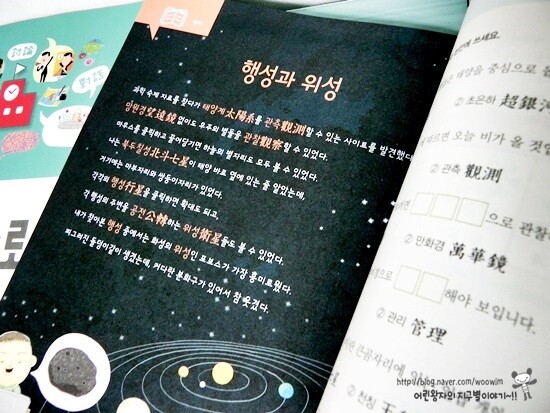 討論
對話
행성과 위성
과학 숙제 자료를 찾다가 태양계太陽系를 관측觀測할 수 있는 사이트를 발견했다.
망원경望遠鏡 없이도 우주의 별들을 관찰觀察할 수 있었다.
마우스를 클릭하고 끌어당기면 하늘의 별자리도 모두 볼 수 있었다.
나는 북두칠성北斗七星이 태양 바로 옆에 있는 줄 알았는데,
거기에는 마부자리와 쌍둥이자리가 있었다.
각각의 행성行星을 클릭하면 확대도 되고,
각 행성의 주변을 공전公轉하는 위성衛星들도 볼 수 있었다.
내가 찾아본 행성 중에서는 화성의 위성인 포보스가 가장 흥미로웠다.
찌그러진 돌덩이같이 생겼는데, 커다란 분화구가 있어서 참 웃겼다.
쓰세요.
태양을 중심으로
② 초은하 超銀河
하면 오늘 비가 올 것
② 관측 觀測
으로 관찰
② 만화경 萬華鏡
해야 보입니다.
② 관리 管理
http://blog.naver.com/woowim
어린왕자의 지구별이야기~!!